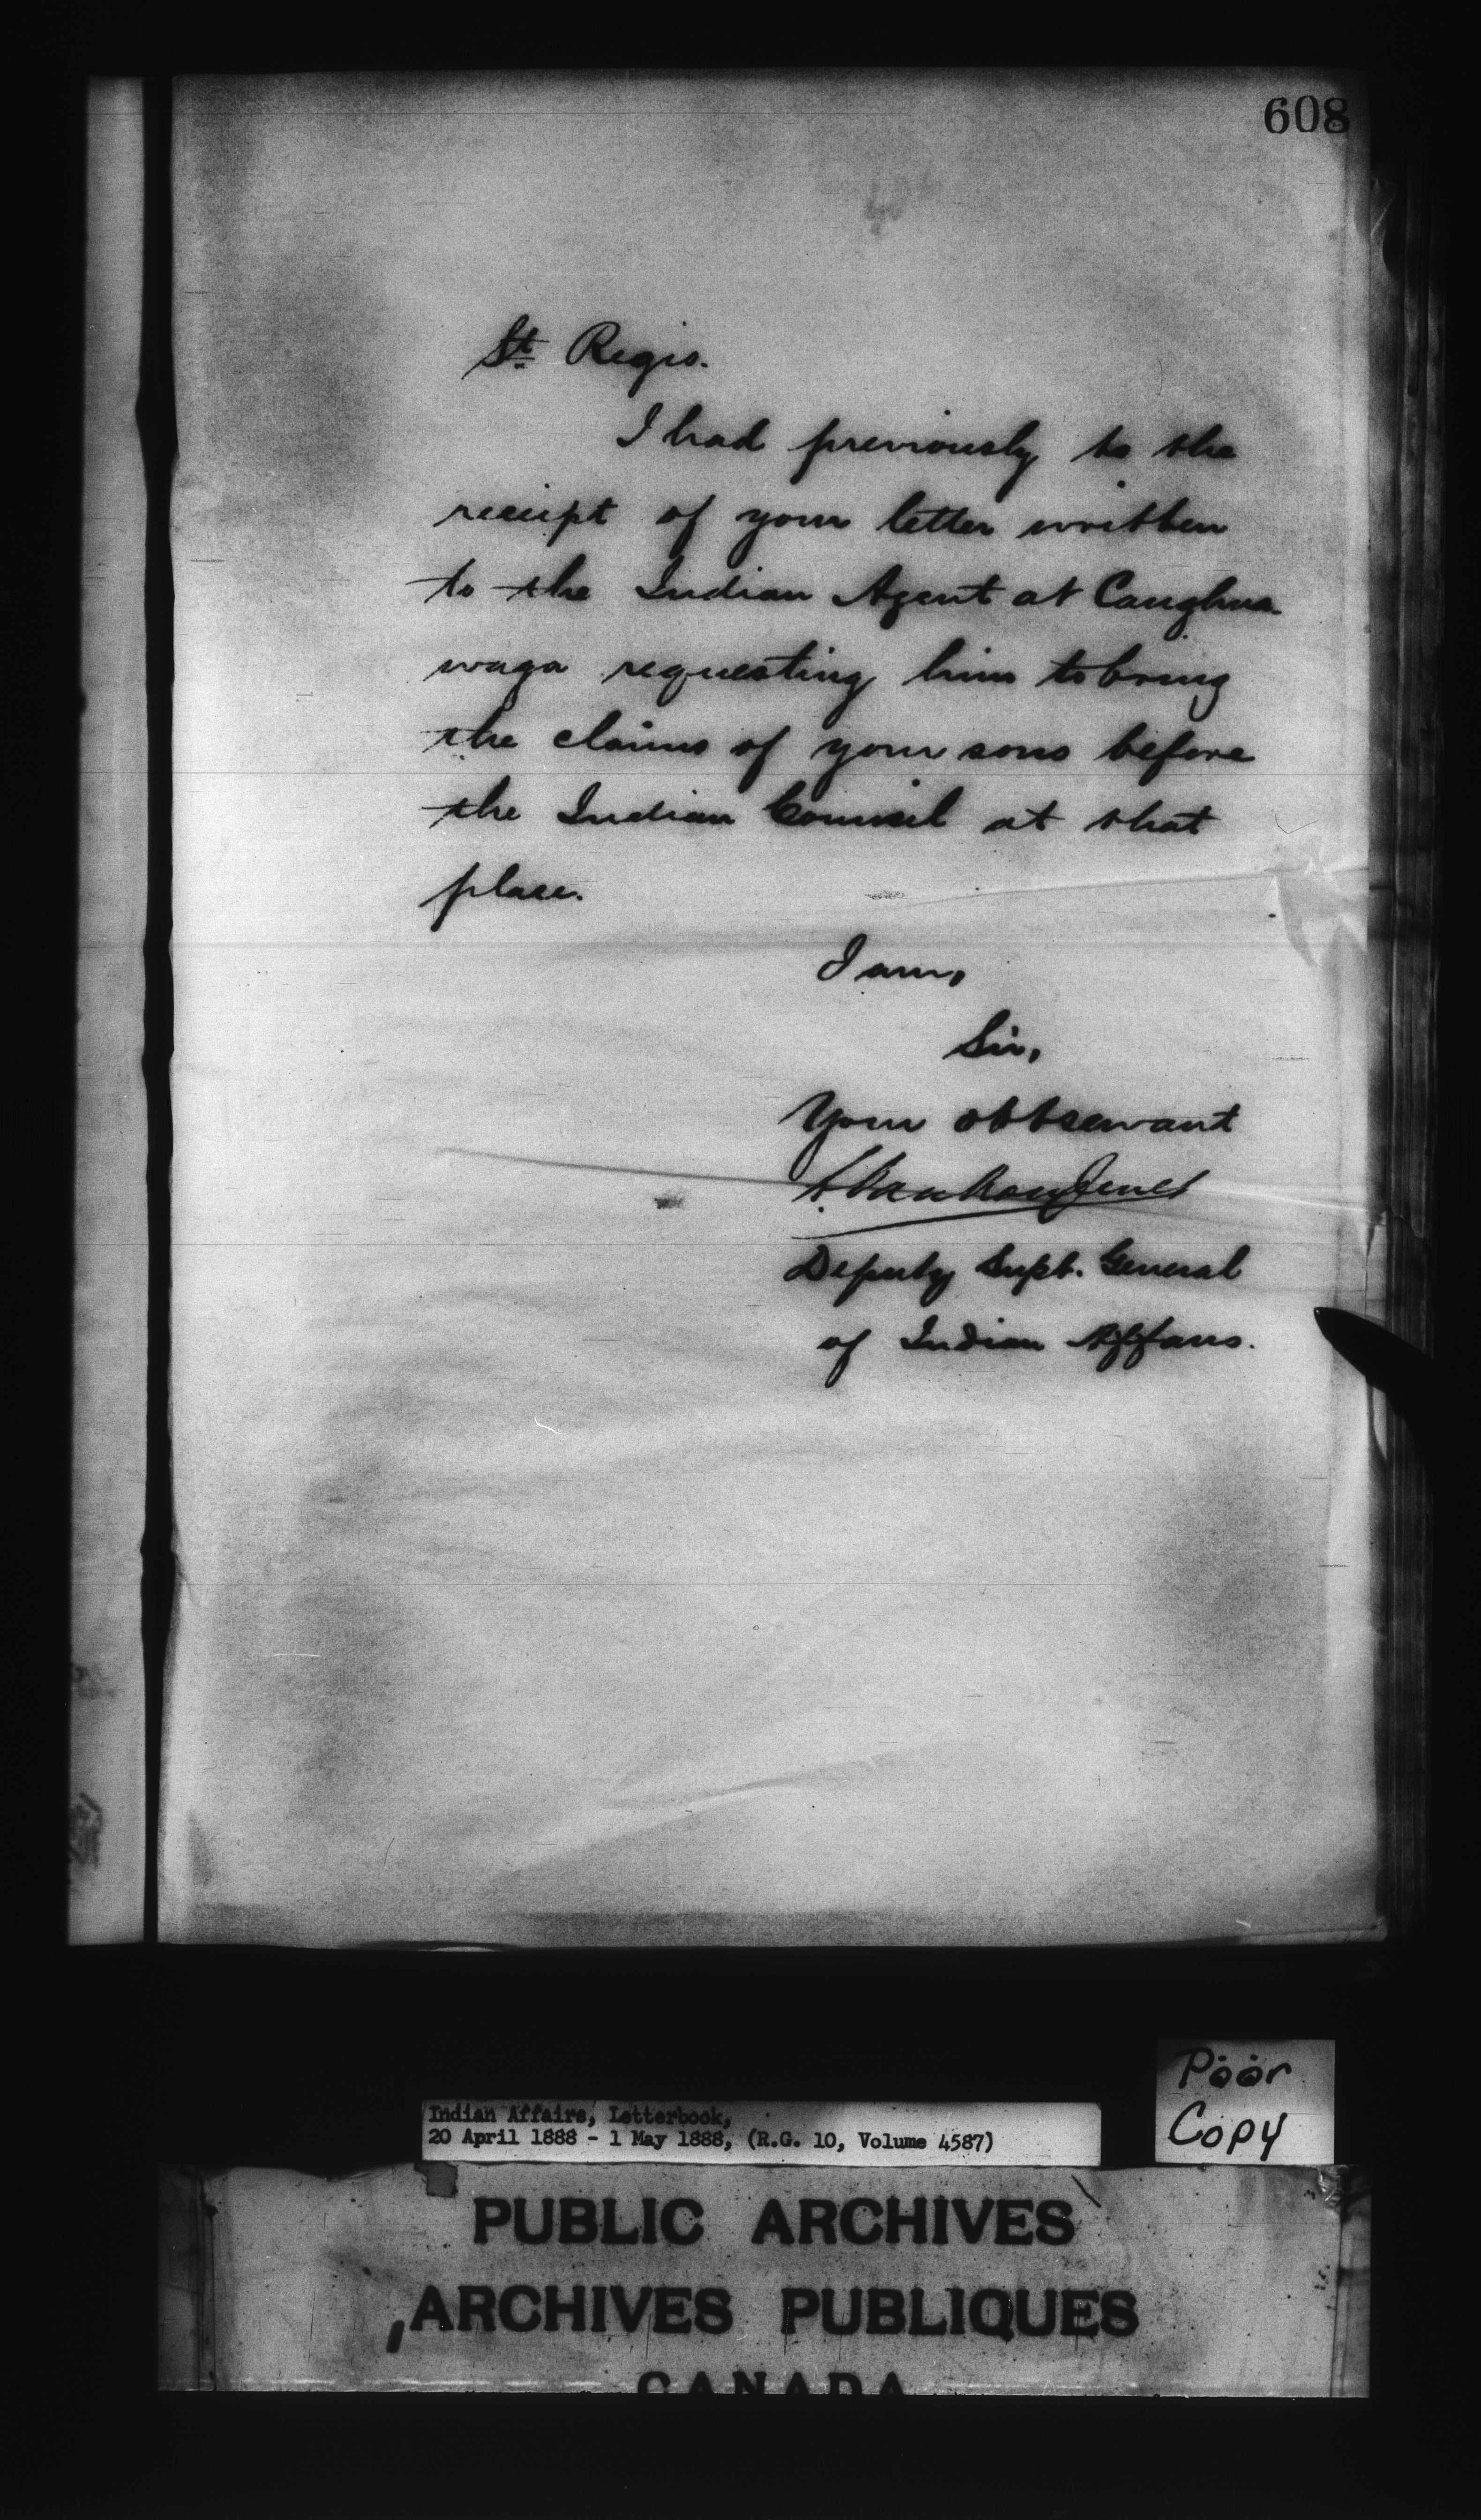 608
St Regis.
I had previously to the
receipt of your letter written
to the Indian Agent at Caughna
waga requesting him to bring
the claims of your sons before
the Indian Council at that
place.
I am,
Sir,
Your obt servant
L. Vankoughnet
Deputy Supt. General
of Indian Affairs.
Poor
Copy
Indian Affairs, Letterbook,
20 April 1888 - 1 May 1888, (R.G. 10, Volume 4587)
PUBLIC ARCHIVES
ARCHIVES PUBLIQUES
CANADA